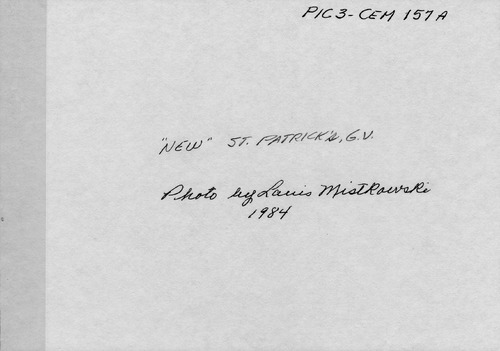 PIC3-CEM 157A
"NEW" ST. PATRICK's, G.V.
Photo by Louis Mistkowski
1984